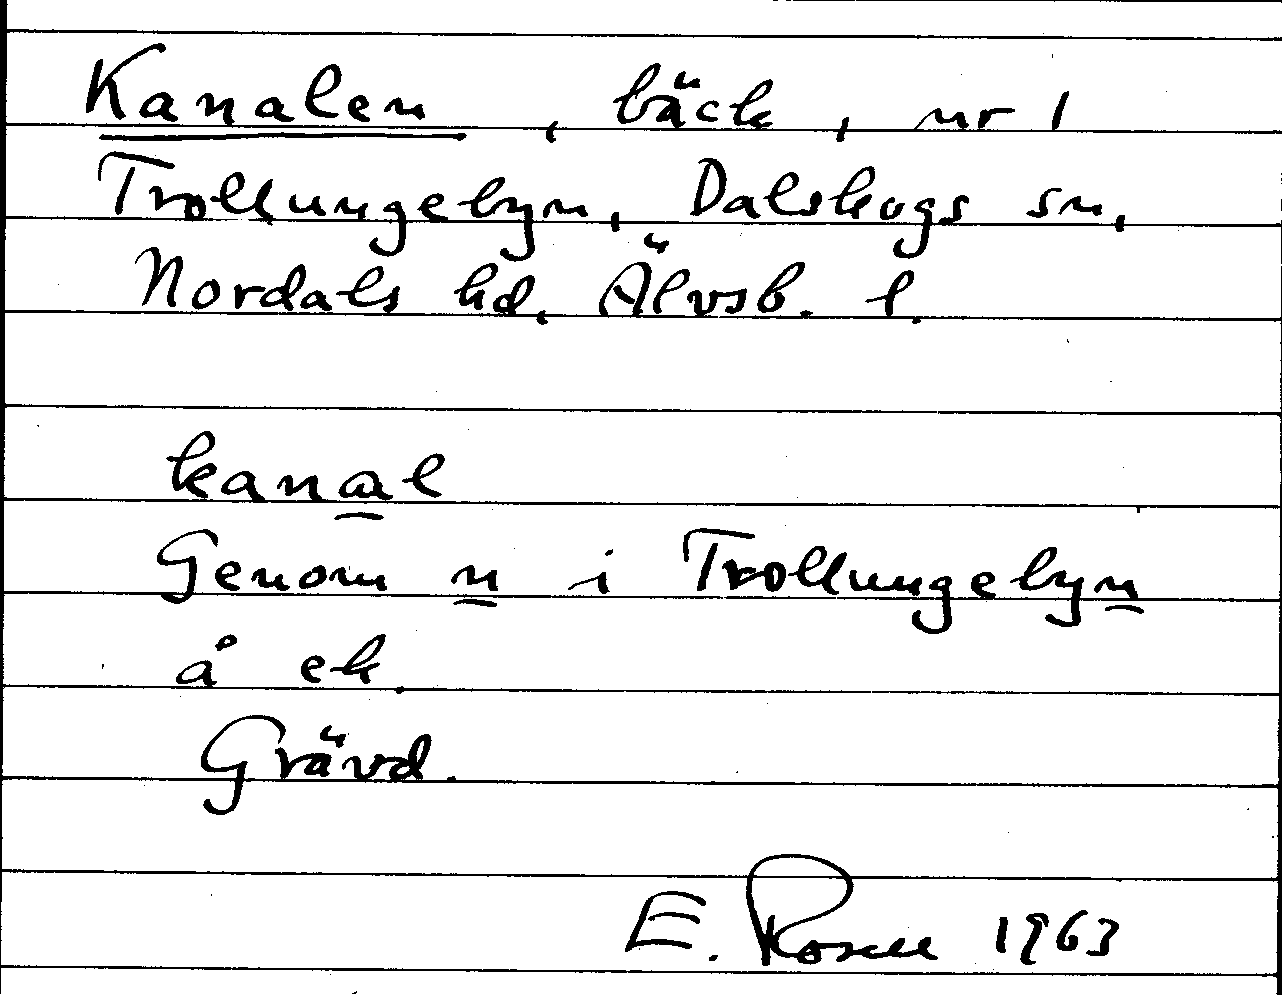 Kanalen, bäck, nr 1
Trollungebyn, Dalskogs sn,
Nordals hd, Älvsb. l.
kanal
Genom n i Trollungebyn
å ek.
Grävd.
E. Rosell 1963